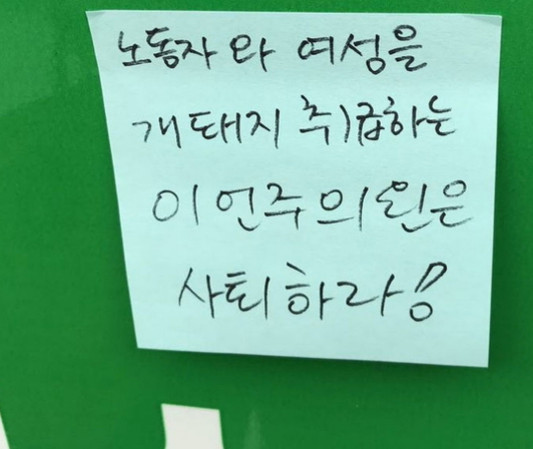 노동자와 여성을
개돼지 취급하는
이언주의원은
사퇴하라!